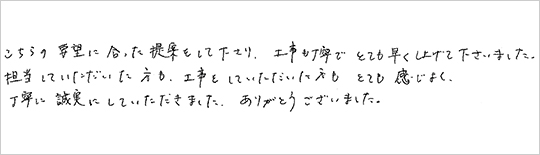 こちらの要望に合った提案をして下さり、工事も丁寧でとても早く上げて下さいました。
担当していただいた方も、工事をしていただいた方もとても感じよく、
丁寧に誠実にしていただきました。ありがとうございました。